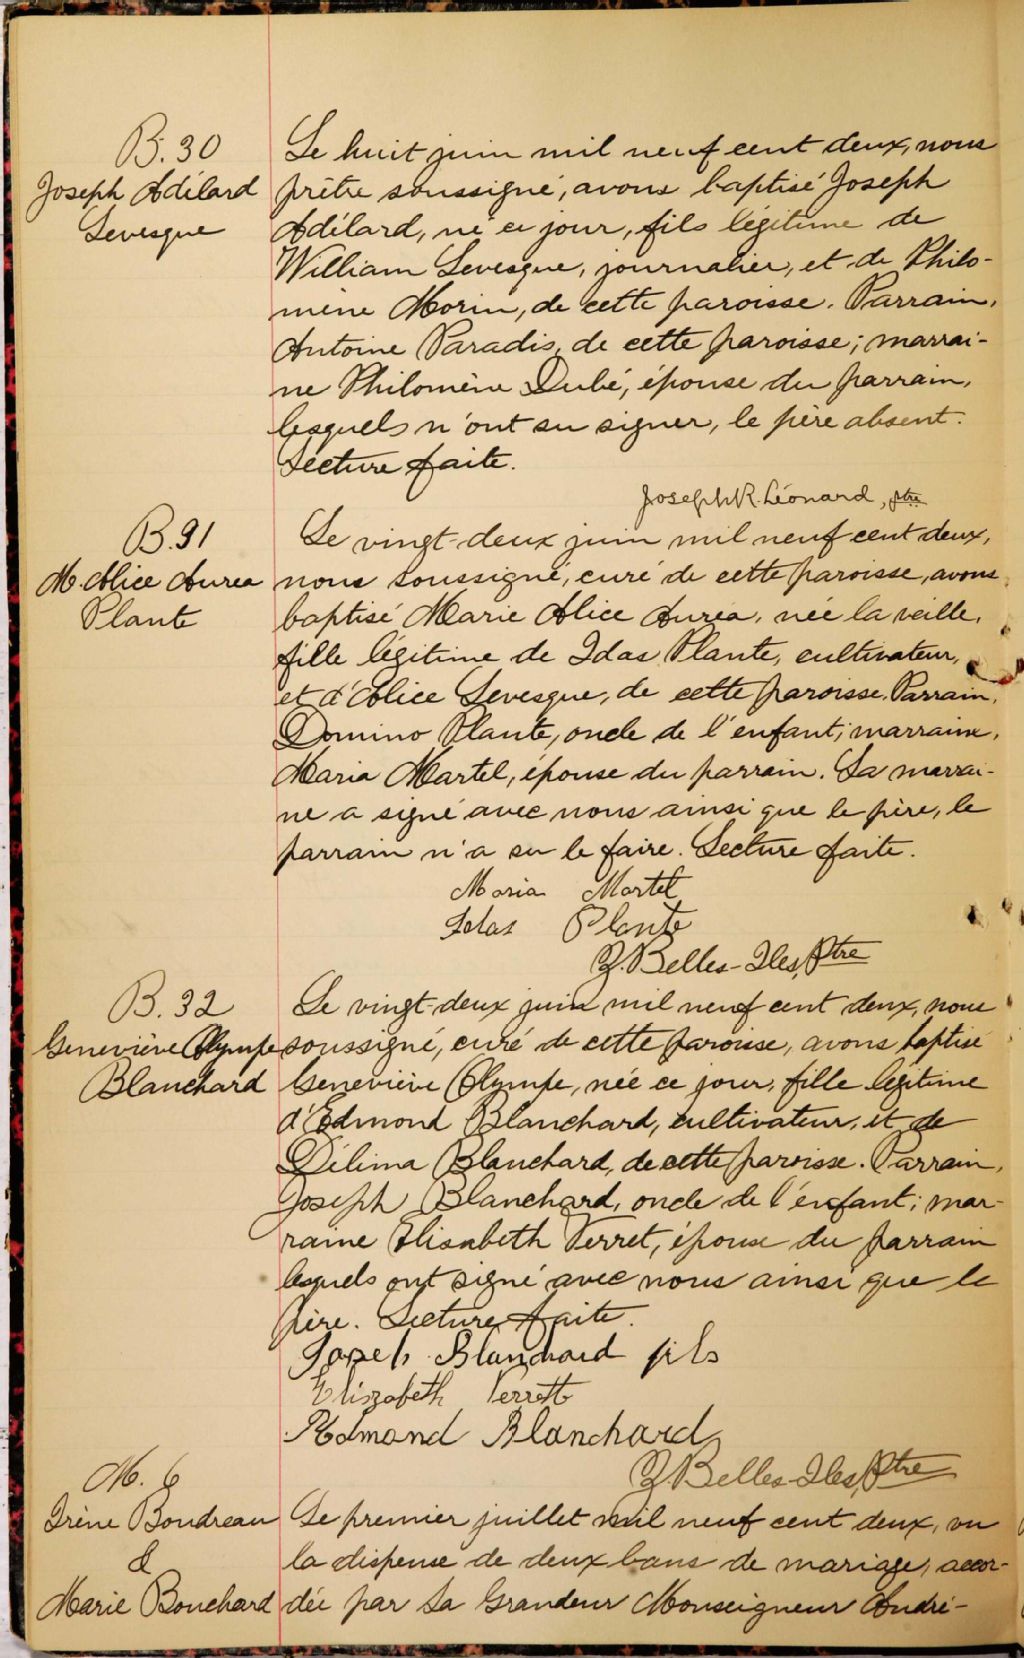 B. 30
Joseph Adélard
Levesque
Le huit juin mil neuf cent deux, nous
prêtre soussigné, avons baptisé Joseph
Adélard, né ce jour, fils légitime de
William Levesque, journalier, et de Philo-
mène Morin, de cette paroisse. Parrain,
Antoine Paradis, de cette paroisse; marrai-
ne Philomène Dubé, épouse du parrain,
lesquels n'ont su signer, le père absent.
Lecture faite.
Joseph R. Léonard, ptre
B. 31
M. Alice Aurea
Plante
Le vingt-deux juin mil neuf cent deux,
nous soussigné, curé de cette paroisse, avons
baptisé Marie Alice Aurea, née la veille,
fille légitime de Idas Plante, cultivateur,
et d'Alice Levesque, de cette paroisse. Parrain,
Domino Plante, oncle de l'enfant; marraine,
Maria Martel, épouse du parrain. La marrai-
ne a signé avec nous ainsi que le père, le
parrain n'a su le faire. Lecture faite.
Maria Martel
Idas Plante
Z. Belles-Iles, Ptre
B. 32
Geneviève Olympe
Blanchard
Le vingt-deux juin mil neuf cent deux, nous
soussigné, curé de cette paroisse, avons baptisé
Geneviève Olympe, née ce jour, fille légitime
d'Edmond Blanchard, cultivateur, et de
Délima Blanchard, de cette paroisse. Parrain,
Joseph Blanchard, oncle de l'enfant; mar-
raine Elisabeth Verret, épouse du parrain
lesquels ont signé avec nous ainsi que le
père. Lecture faite.
Joseh Blanchard fils
Elizabeth Verrett
Edmond Blanchard
Z. Belles-Iles, Ptre
M. 6
Irène Boudreau
&
Marie Bouchard
Le premier juillet mil neuf cent deux, vu
la dispense de deux bans de mariage, accor-
dée par Sa Grandeur Monseigneur André-